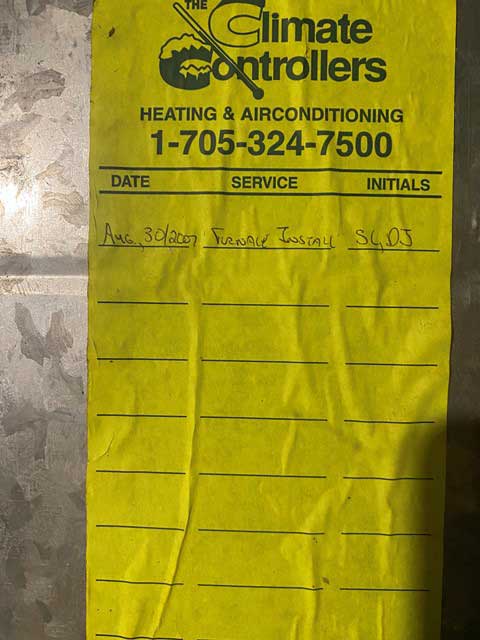 THE
Climate
Controllers
HEATING & AIRCONDITIONING
1-705-324-7500
DATE SERVICE INITIALS
Aug. 30/2007 Furnace Install SG, DJ